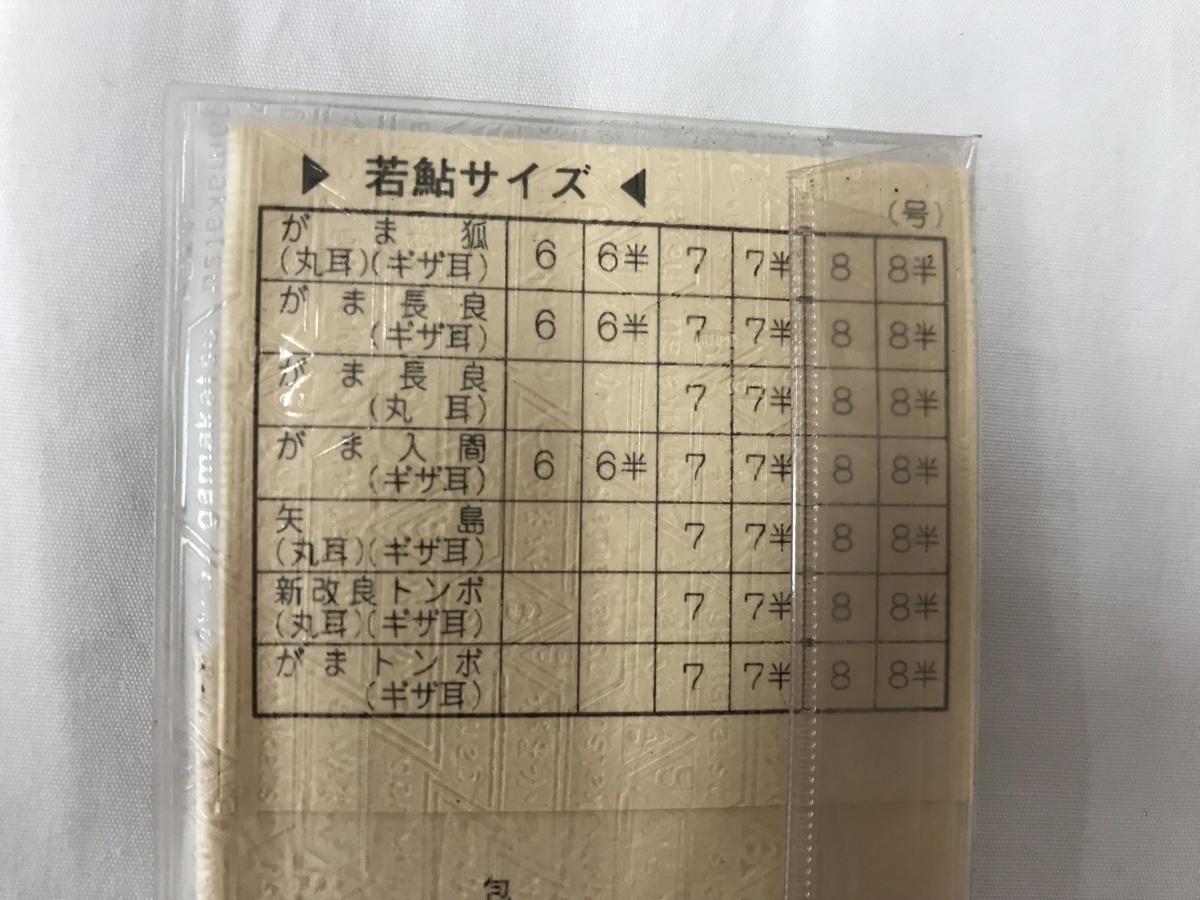 ▶ 若鮎サイズ ◀
(号)
がま狐
(丸耳)(ギザ耳) 6 6半 7 7半 8 8半
がま長良
(ギザ耳) 6 6半 7 7半 8 8半
がま長良
(丸耳) 7 7半 8 8半
がま入間
(ギザ耳) 6 6半 7 7半 8 8半
矢島
(丸耳)(ギザ耳) 7 7半 8 8半
新改良トンボ
(丸耳)(ギザ耳) 7 7半 8 8半
がまトンボ
(ギザ耳) 7 7半 8 8半
包
Gamakatsu